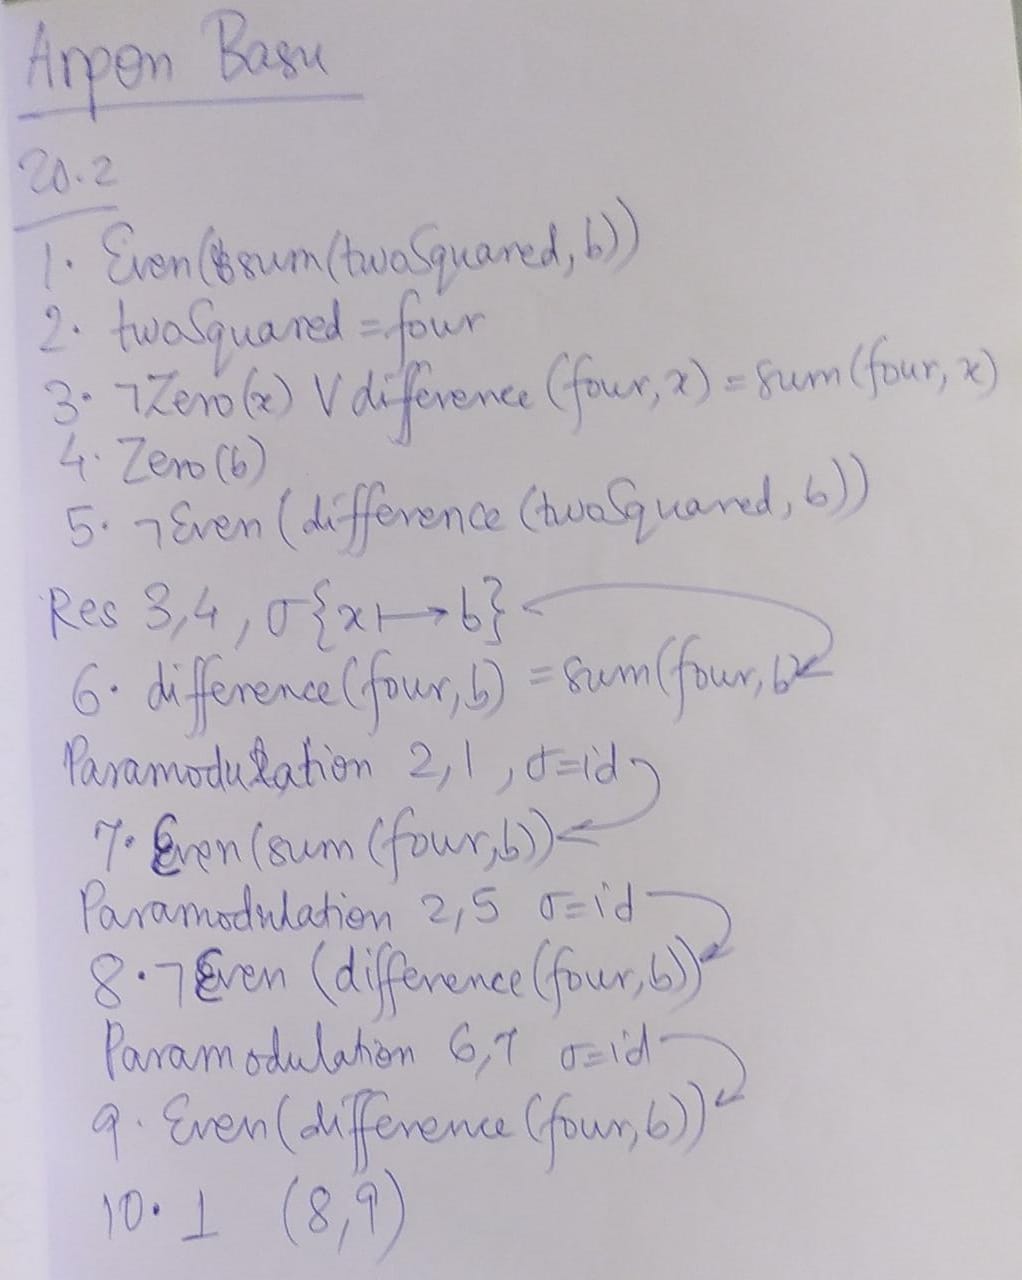 Arpon Basu
20.2
1. Even(sum(twoSquared, b))
2. twoSquared = four
3. ¬Zero(x) ∨ difference (four, x) = sum(four, x)
4. Zero(b)
5. ¬Even(difference (twoSquared, b))
Res 3,4, σ{x↦b}
6. difference(four, b) = sum(four, b)
Paramodulation 2,1, σ=id
7. Even(sum(four,b))
Paramodulation 2,5 σ=id
8. ¬Even (difference(four,b))
Paramodulation 6,7 σ=id
9. Even(difference(four,b))
10. ⊥ (8,9)